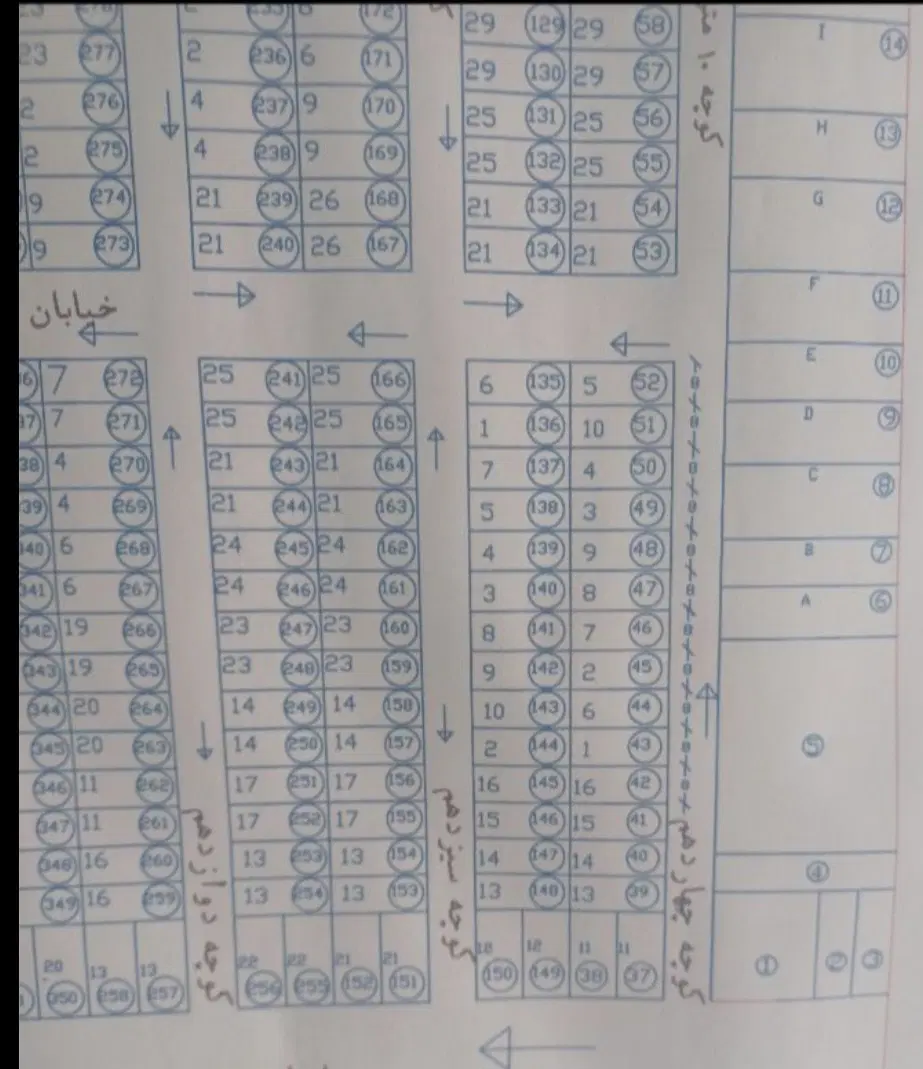 172
29 129 29 58 I 14
23 277 2 236 6 171
29 130 29 57
2 276 4 237 9 170
25 131 25 56 H 13
2 275 4 238 9 169
25 132 25 55
9 274 21 239 26 168
21 133 21 54 G 12
9 273 21 240 26 167
21 134 21 53
کوچه ۱۰
F 11
خیابان
E 10
7 272 25 241 25 166 6 135 5 52
7 271 25 242 25 165 1 136 10 51 D 9
4 270 21 243 21 164 7 137 4 50 C 8
4 269 21 244 21 163 5 138 3 49
340 6 268 24 245 24 162 4 139 9 48 B 7
341 6 267 24 246 24 161 3 140 8 47 A 6
342 19 266 23 247 23 160 8 141 7 46
343 19 265 23 248 23 159 9 142 2 45
344 20 264 14 249 14 158 10 143 6 44
345 20 263 14 250 14 157 2 144 1 43 5
346 11 262 17 251 17 156 16 145 16 42
347 11 261 17 252 17 155 15 146 15 41
348 16 260 13 253 13 154 14 147 14 40 4
349 16 259 13 254 13 153 13 148 13 39
کوچه دوازدهم
کوچه سیزدهم
کوچه چهاردهم
20 13 13 22 22 21 21 12 12 11 11
350 258 257 256 255 152 151 150 149 38 37 1 2 3